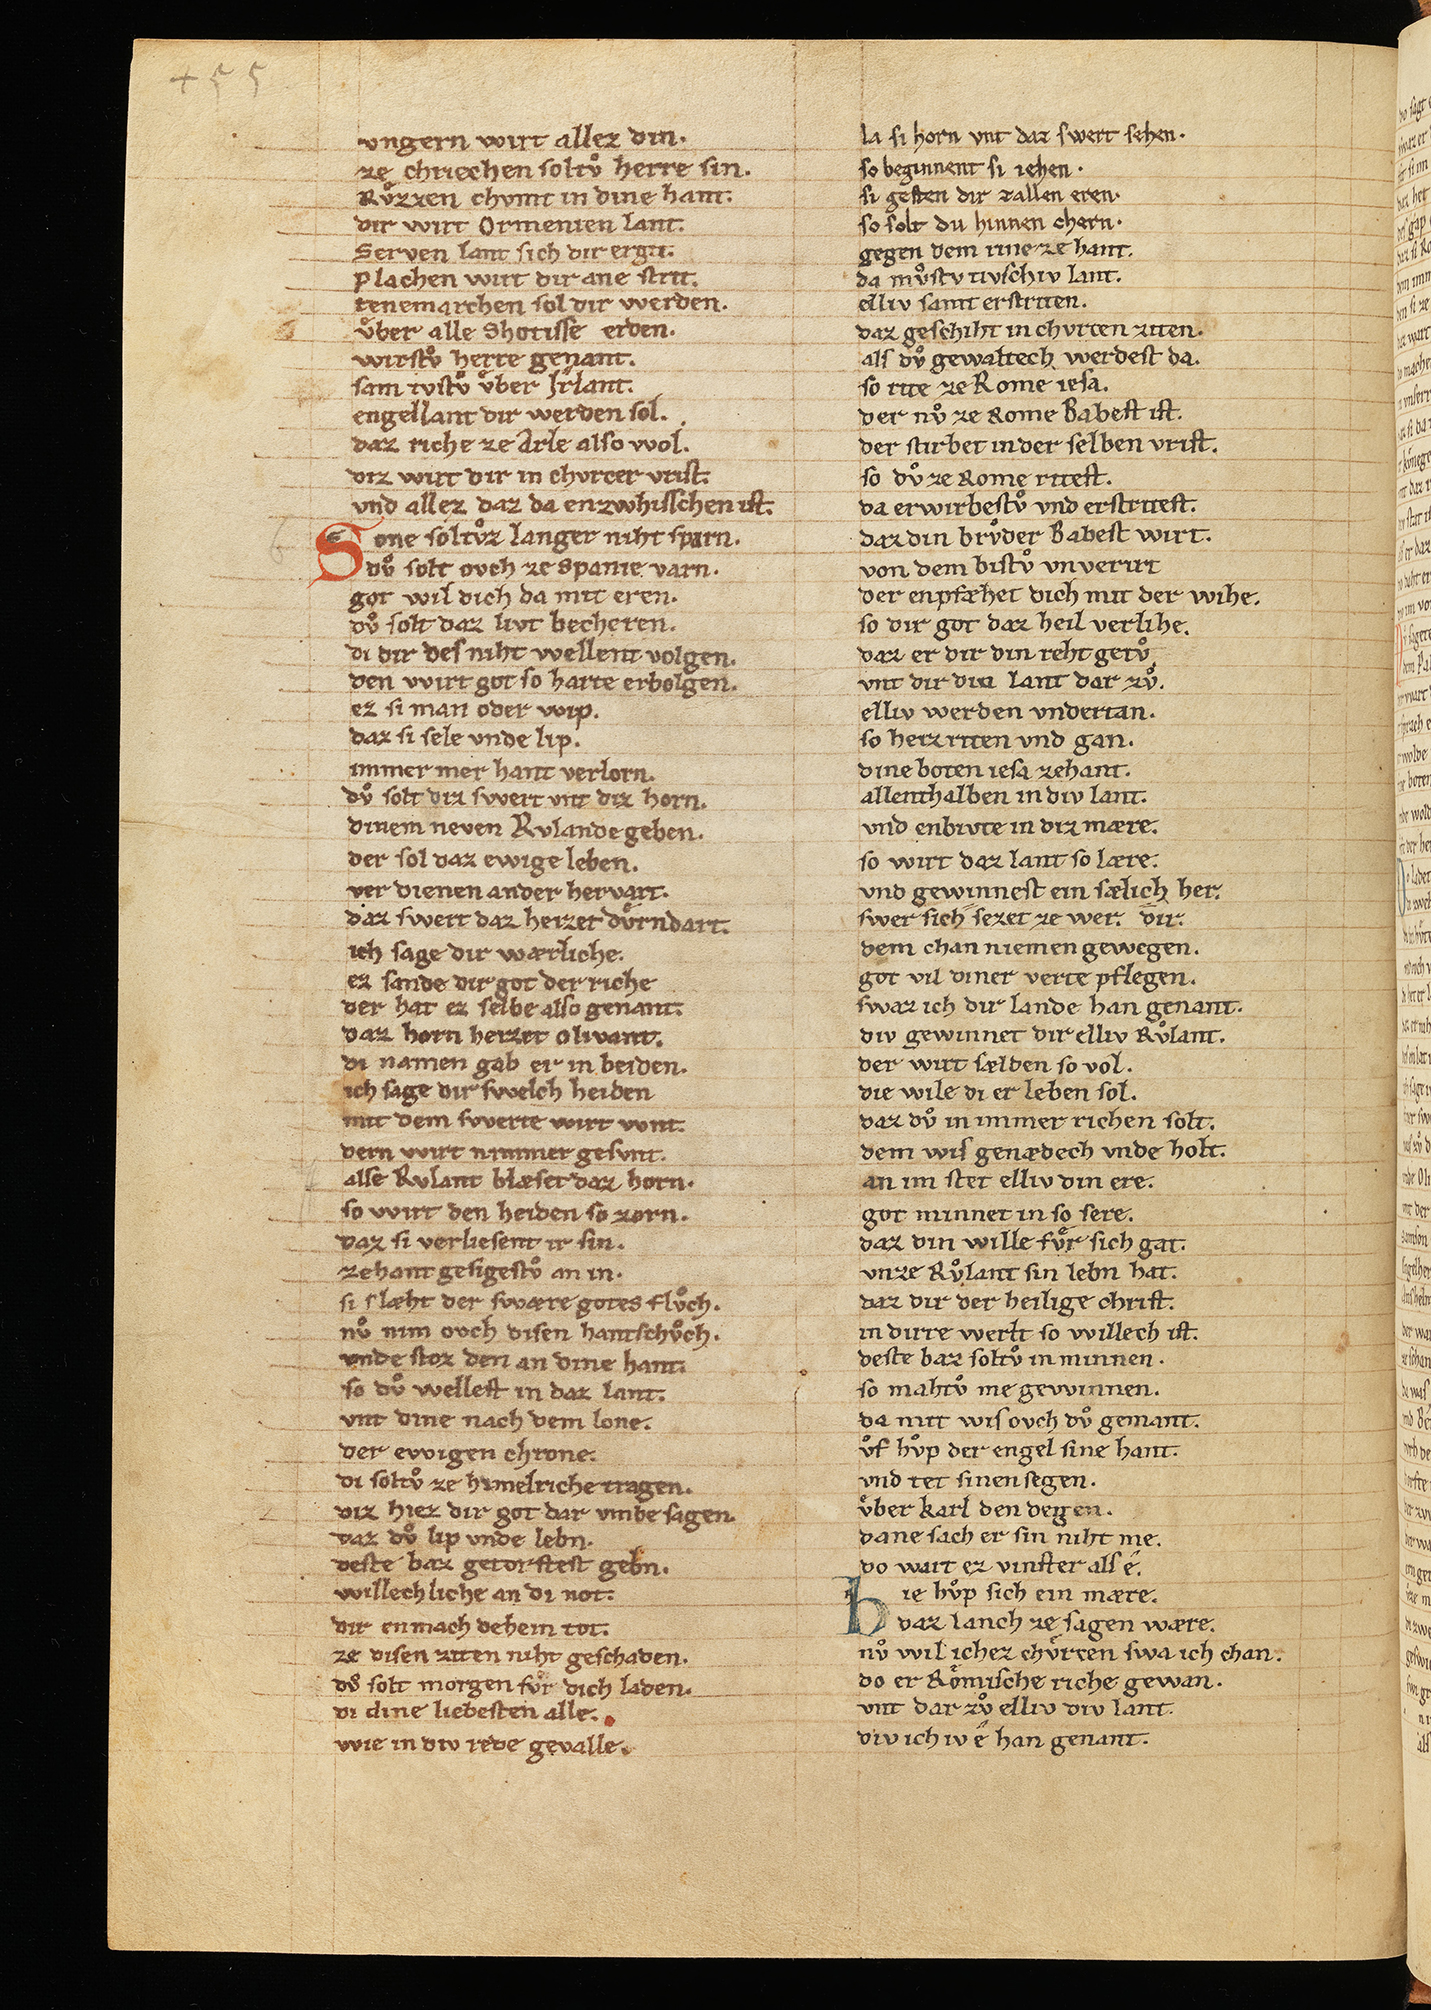 455
vngern wirt allez din.
ze chriechen soltv̊ herre sin.
Rv̊zzen chvmt in dine hant.
dir wirt Ormenien lant.
Serven lant sich dir ergit.
plachen wirt dir ane strit.
tenemarchen sol dir werden.
v̊ber alle Shotisse erden.
wirstv̊ herre genant.
sam tvstv̊ v̊ber Jrlant.
engellant dir werden sol.
daz riche ze Arle also wol.
diz wirt dir in chvrcer vrist.
vnd allez daz da enzwhisschen ist.
Sone soltv̊z langer niht sparn.
dv̊ solt ovch ze Spanie varn.
got wil dich da mit eren.
dv̊ solt daz livt becheren.
di dir des niht wellent volgen.
den wirt got so harte erbolgen.
ez si man oder wip.
daz si sele vnde lip.
immer mer hant verlorn.
dv̊ solt diz swert vnt diz horn.
dinem neven Rvlande geben.
der sol daz ewige leben.
ver dienen an der hervart.
daz swert daz heizet dv̊rndart.
ich sage dir wærliche.
ez sande dir got der riche
der hat ez selbe also genant.
daz horn heizet Olivant.
di namen gab er in beiden.
ich sage dir swelch heiden
mit dem swerte wirt wnt.
dern wirt nimmer gesvnt.
alse Rvlant blæset daz horn.
so wirt den heiden so zorn.
daz si verliesent ir sin.
zehant gesigestv̊ an in.
si slæht der swære gotes flv̊ch.
nv̊ nim ovch disen hantschv̊ch.
vnde stoz den an dine hant.
so dv̊ wellest in daz lant.
vnt dine nach dem lone.
der ewigen chrone.
di soltv̊ ze himelriche tragen.
diz hiez dir got dar vmbe sagen.
daz dv̊ lip vnde lebn.
deste baz getorstest gebn.
willechliche an di not.
dir en mach dehein tot.
ze disen ziten niht geschaden.
dv̊ solt morgen fv̊r dich laden.
di dine liebesten alle.
wie in div rede gevalle.
la si horn vnt daz swert sehen.
so beginnent si iehen.
si gesten dir zallen eren.
so solt du hinnen chern.
gegen dem rine ze hant.
da mv̊stv tivschiv lant.
elliv samt erstriten.
daz geschiht in chvrcen ziten.
als dv̊ gewaltech werdest da.
so rite ze Rome iesa.
der nv̊ ze Rome Babest ist.
der stirbet in der selben vrist.
so dv̊ ze Rome ritest.
da erwirbestv̊ vnd erstritest.
daz din brv̊der Babest wirt.
von dem bistv̊ vnverirt
der enpfæhet dich mit der wihe.
so dir got daz heil verlihe.
daz er dir din reht getv̊
vnt dir div lant dar zv̊.
elliv werden vndertan.
so heiz riten vnd gan.
dine boten iesa zehant.
allenthalben in div lant.
vnd enbivte in diz mære.
so wirt daz lant so lære.
vnd gewinnest ein sælich her.
swer sich sezet ze wer dir.
dem chan niemen gewegen.
got vil diner verte pflegen.
swaz ich dir lande han genant.
div gewinnet dir elliv Rv̊lant.
der wirt sælden so vol.
die wile di er leben sol.
daz dv̊ in immer richen solt.
dem wis genædech vnde holt.
an im stet elliv din ere.
got minnet in so sere.
daz din wille fv̊r sich gat.
vnze Rv̊lant sin lebn hat.
daz dir der heilige christ.
in dirre werlt so willech ist.
deste baz soltv̊ in minnen.
so mahtv̊ me gewinnen.
da mit wis ovch dv̊ gemant.
v̊f hv̊p der engel sine hant.
vnd tet sinen segen.
v̊ber karl den degen.
dane sach er sin niht me.
do wart ez vinster als é.
hie hv̊p sich ein mære.
daz lanch ze sagen wære.
nv̊ wil ichez chv̊rzen swa ich chan.
do er Rômische riche gewan.
vnt dar zv̊ elliv div lant.
div ich iv é han genant.